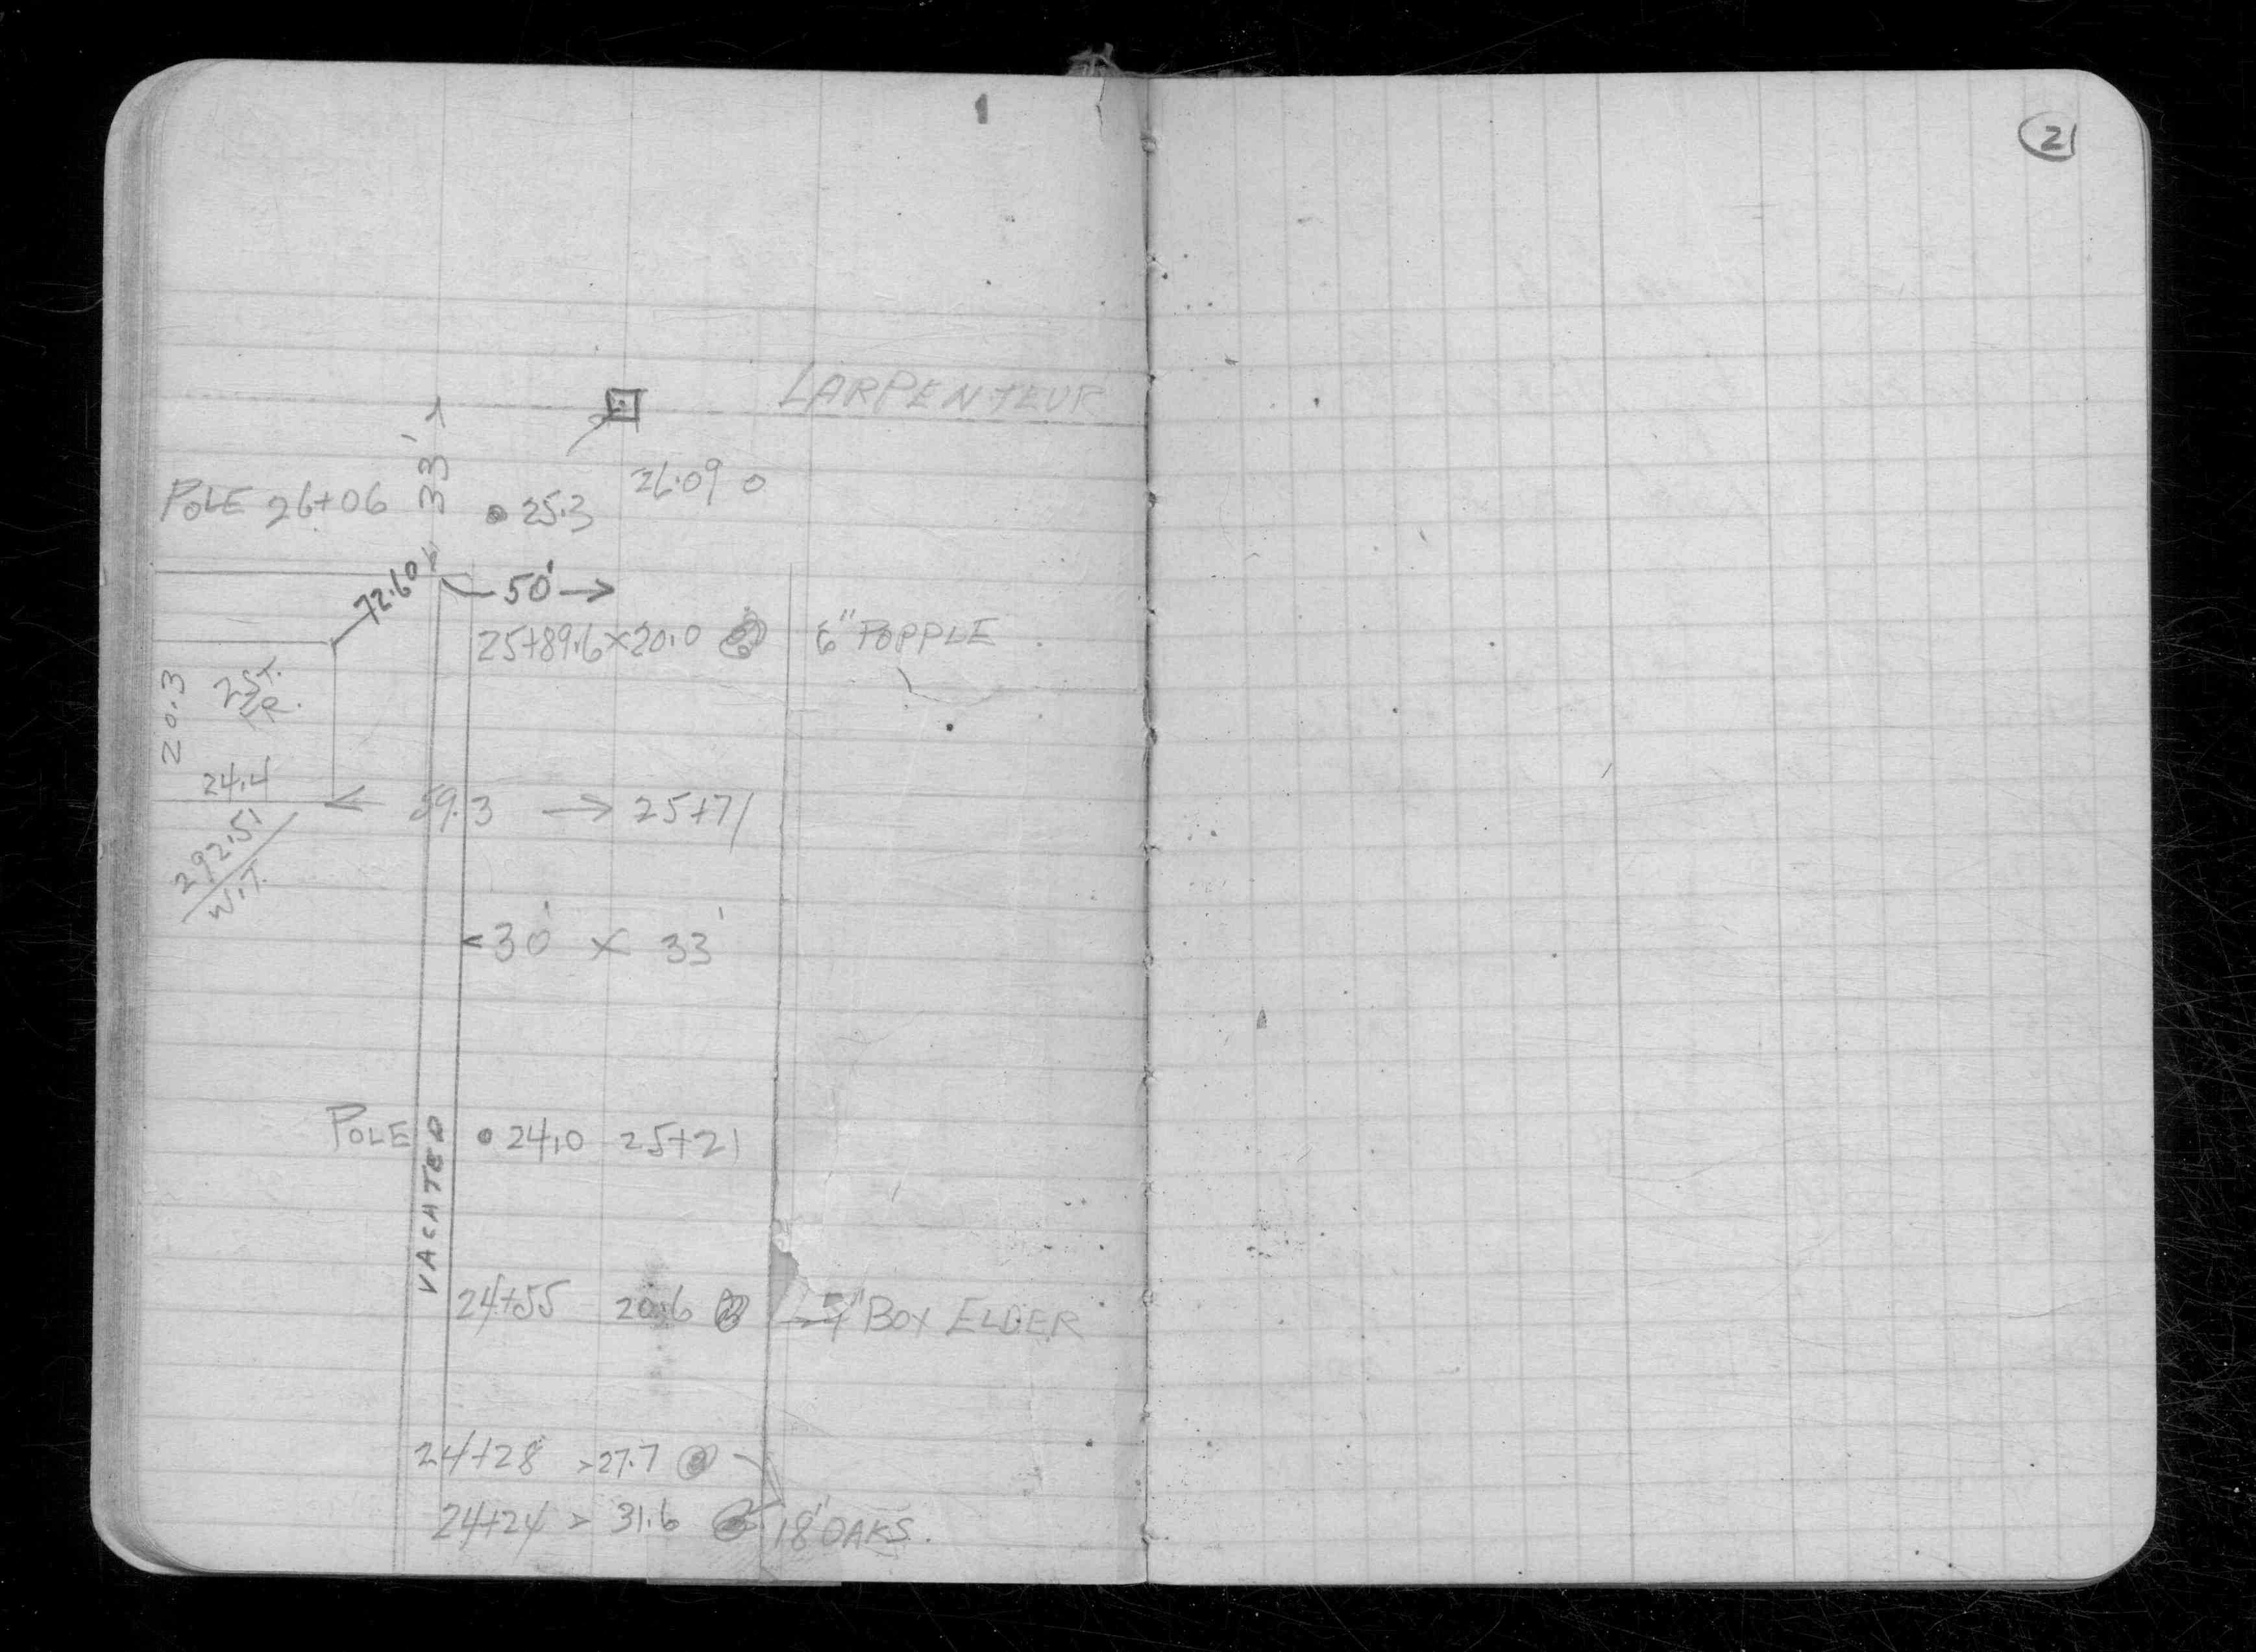 21
LARPENTEUR
33'
26.09 0
POLE 26+06
25.3
72.60
50'
25+89.6 x 20.0
6" POPPLE
20.3
2 ST.
FR.
24.4
59.3
25+71
292.51
W.T.
30' x 33'
POLE
24.0 25+21
VACATED
24+55 20.6
BOX ELDER
24+28 > 27.7
24+24 > 31.6
18" OAKS.